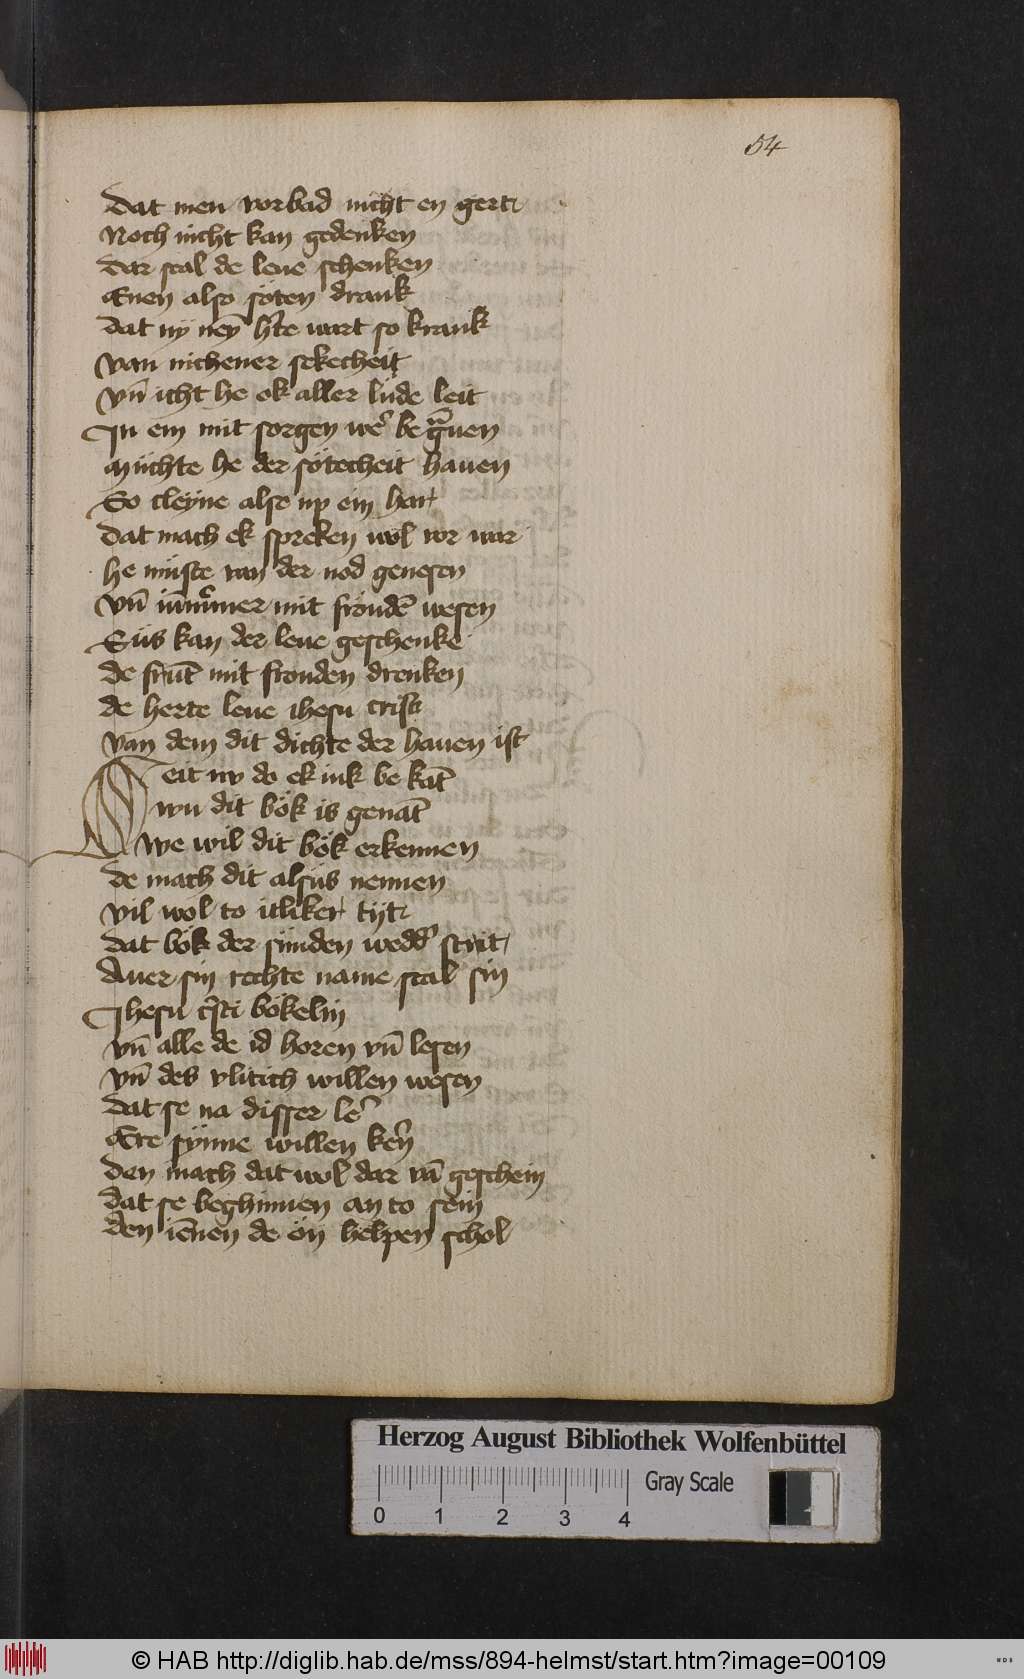 54
Dat men vorbad nicht en gert
Noch nicht kan gedenken
Dar scal de leue schenken
Enen also söten drank
Dat ny ney h̄te wart so krank
Van nichener sekecheit
Vn̄ icht he ok aller lude leit
In em mit sorgen we᷑ be gᷓuen
Müchte he der sötecheit hauen
So cleyne alse up ein har
Dat mach ek spreken wol vor war
he müste van der nod genesen
Vn̄ iūmermer mit fröudē wesen
Süs kan der leue geschenke
De frūt mit frouden drenken
De herte leue ihesu crist
Van dem dit dichte der hauen ist
Seit nv do ek iuk be kāt
wu dit bök is genāt
we wil dit bök erkennen
De mach dit alsüs nennen
Vil wol to itliker tyt
Dat bök der sunden wedd᷑ strit
Auer sin rechte name scal sin
Ihesu c̄sti bökelin
Vn̄ alle de id horen vn̄ lesen
Vn̄ des vlitich willen wesen
Dat se na disser le᷑
Ere synne willen ker̄
Den mach dat wol dar vā geschein
Dat se beghinnen an to sein
Den iēnen de ön helpen schol
Herzog August Bibliothek Wolfenbüttel
Gray Scale
0 1 2 3 4
© HAB http://diglib.hab.de/mss/894-helmst/start.htm?image=00109